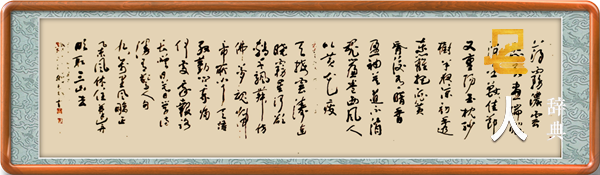 薄霧濃雲
又重陽玉枕紗
廚半夜涼初透
東籬把酒黃
昏後有暗香
盈袖莫道不消
魂簾卷西風人
比黃花瘦
天接雲濤連
曉霧星河欲
轉千帆舞彷
彿夢魂歸帝
所聞天語
殷勤問我歸
何處我報路
長嗟日暮學詩
謾有驚人句
九萬里風鵬正
舉風休住蓬舟
吹取三山去
人
辞典